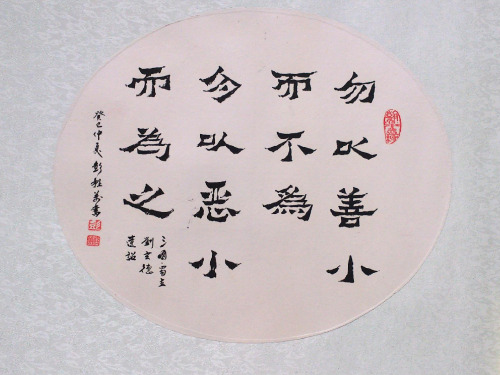 勿以善小
而不為
勿以恶小
而為之
三國蜀主
劉玄德
遺詔
癸巳仲夏彭書